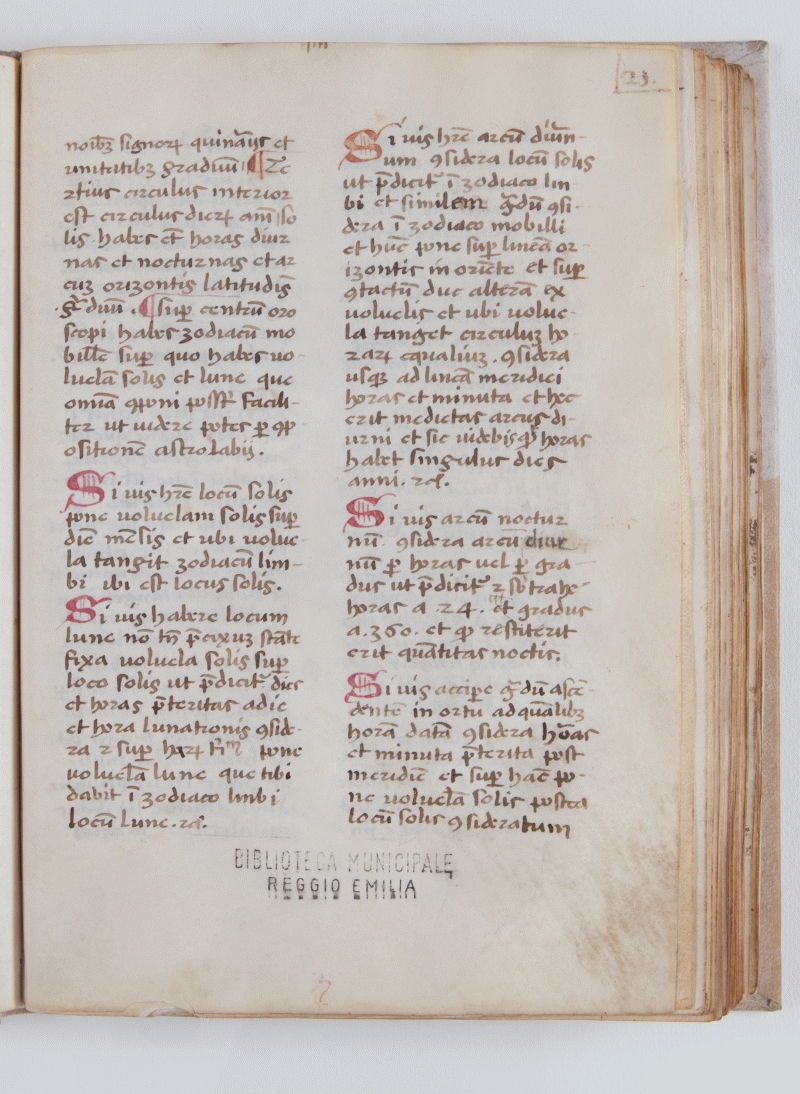 23.
noĩbꝫ signoꝝ quinarijs et
unitatibꝫ graduũ ¶ Te
rtius circulus interior
est circulus dieꝝ anñi so
lis habes et̃ horas diur
nas et nocturnas et ar
cuꝫ orizontis latitudis
gͣduũ . ¶ sup̱ centrũ oro
scopi habes zodiacũ mo
bille sup̱ quo habes uo-
luclã solis et lune que
omnia ꝯponi possũt facili-
ter ut uidere potes p̱ ꝯp
ositionẽ astrolabij.
Si uis hr̃e locũ solis
pone uoluelam solis sup̱
diẽ mẽsis et ubi uolue-
la tangit zodiacũ lim-
bi ibi est locus solis.
Si uis habere locum
lune nõ tñ p̃cixuꝫ state
fixa uoluela solis sup̱
loco solis ut p̃dicit᷑ dies
et horas p̃teritas a die
et hora lunationis ꝯside-
ra ⁊ sup̱ hoꝝ pone
uoluelã lune que tibi
dabit ĩ zodiaco limbi
locũ lune. ⁊cͣ.
Si uis hr̃e arcũ diur̃n-
um ꝯsidera locũ solis
ut p̃dicit᷑ ĩ zodiaco lim
bi et similem gͣdũ ꝯsi-
dera ĩ zodiaco mobilli
et hũc pone sup̱ lineã or-
izontis in oriẽte et sup̱
ꝯtactũ duc alterã ex
uoluelis et ubi uolue-
la tanget circuluꝫ ho-
raꝝ equaliuꝫ . ꝯsidera
usqꝫ ad lineã meridiei
horas et minuta et hec
erit medietas arcus di-
urni et sic uidebis qͫ horas
habet singulus dies
anni. ⁊cͣ.
Si uis arcũ noctur
nũ ꝯsidera arcũ diur
nũ p̱ horas uel p̱ gra-
dus ut p̃dicit᷑ ⁊ sb̃trahe
horas a . 24 . et gradus
a . 360 . et ꝙ restiterit
erit quãtitas noctis.
Si uis accip̱e gͣdũ ascẽ-
dentẽ in ortu ad quãlibꝫ
horã datã ꝯsidera horas
et minuta p̃terita post
meridiẽ et sup̱ hãc po-
ne uoluelã solis postea
locũ solis ꝯsideratum
BIBLIOTECA MUNICIPALE
REGGIO EMILIA